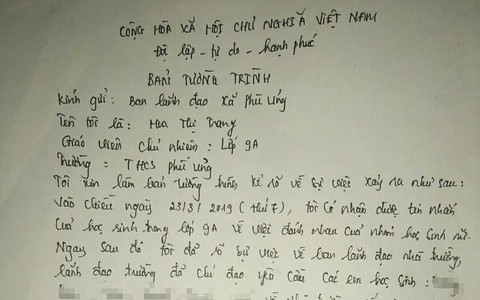 CỘNG HÒA XÃ HỘI CHỦ NGHĨA VIỆT NAM
Độ lập - tự do - hạnh phúc
BẢN TƯỜNG TRÌNH
Kính gửi: Ban lãnh đạo xã Phù Ủng
Tên tôi là: Hoa Thị Trang
Giáo viên chủ nhiệm: Lớp 9A
Trường: THCS Phù Ủng
Tôi xin làm bản tường trình kể rõ về sự việc xảy ra như sau:
Vào chiều ngày 23/3/2019 (thứ 7), tôi có nhận được tin nhắn
của học sinh trong lớp 9A về việc đánh nhau của nhóm học sinh nữ.
Ngay sau đó tôi đã sự việc về ban lãnh đạo nhà trường,
lãnh đạo trường đã chỉ đạo yêu cầu các em học sinh: